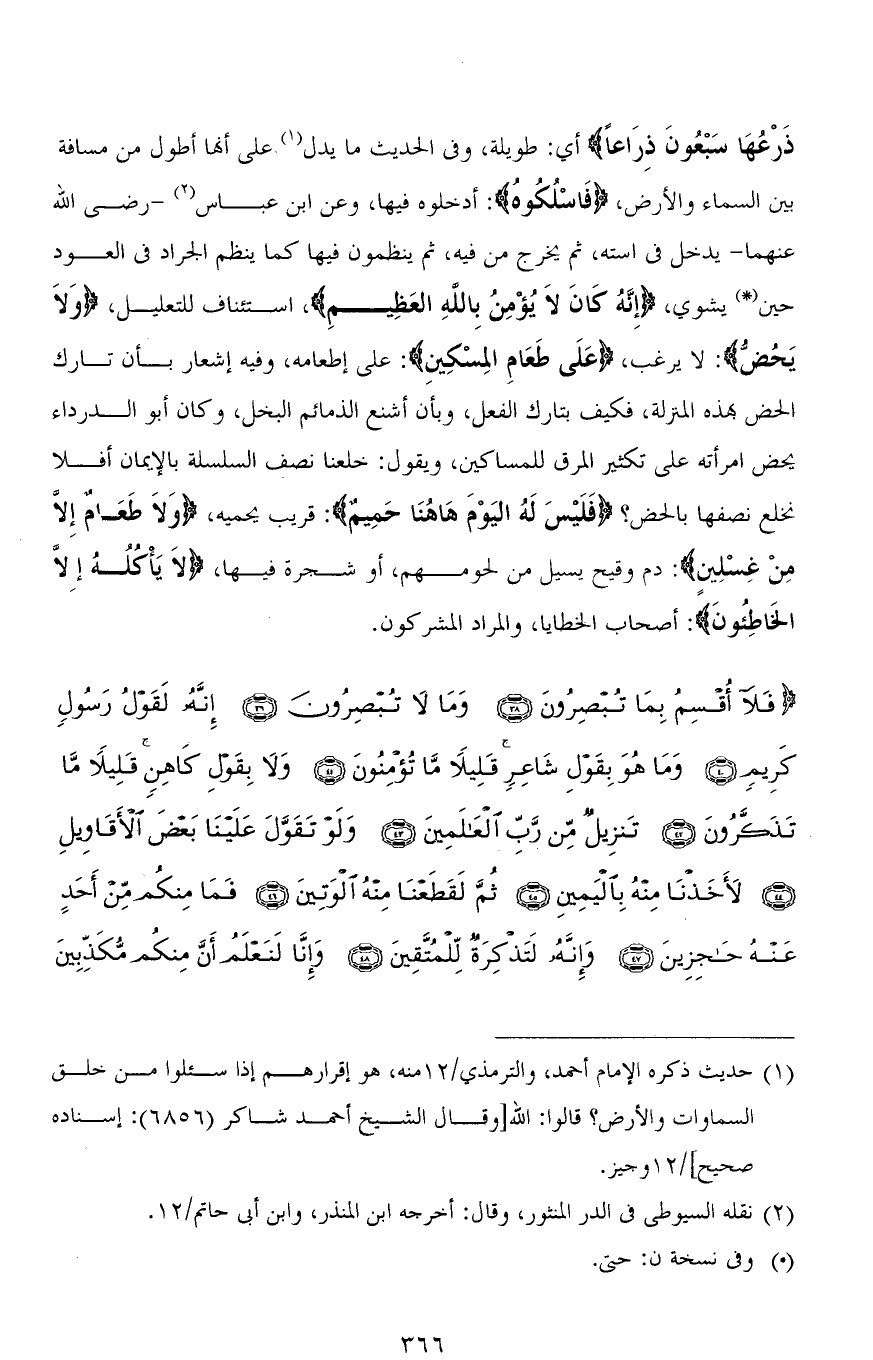 ذَرْعُهَا سَبْعُونَ ذِرَاعاً﴾ أي: طويلة، وفى الحديث ما يدل(١) على أنها أطول من مسافة
بين السماء والأرض، ﴿فَاسْلُكُوهُ﴾: أدخلوه فيها، وعن ابن عباس(٢) -رضى الله
عنهما- يدخل فى استه، ثم يخرج من فيه، ثم ينظمون فيها كما ينظم الجراد فى العود
حين(*) يشوي، ﴿إِنَّهُ كَانَ لاَ يُؤْمِنُ بِاللَّهِ العَظِيمِ﴾، استئناف للتعليل، ﴿وَلاَ
يَحُضُّ﴾: لا يرغب، ﴿عَلَى طَعَامِ المِسْكِينِ﴾: على إطعامه، وفيه إشعار بأن تارك
الحض بهذه المنزلة، فكيف بتارك الفعل، وبأن أشنع الذمائم البخل، وكان أبو الدرداء
يحض امرأته على تكثير المرق للمساكين، ويقول: خلعنا نصف السلسلة بالإيمان أفلا
نخلع نصفها بالحض؟ ﴿فَلَيْسَ لَهُ اليَوْمَ هَاهُنَا حَمِيمٌ﴾: قريب يحميه، ﴿وَلاَ طَعَامٌ إِلاَّ
مِنْ غِسْلِينٍ﴾: دم وقيح يسيل من لحومهم، أو شجرة فيها، ﴿لاَ يَأْكُلُهُ إِلاَّ
الخَاطِئُونَ﴾: أصحاب الخطايا، والمراد المشركون.
﴿ فَلَآ أُقْسِمُ بِمَا تُبْصِرُونَ ٣٨ وَمَا لَا تُبْصِرُونَ ٣٩ إِنَّهُۥ لَقَوْلُ رَسُولٍ
كَرِيمٍ ٤٠ وَمَا هُوَ بِقَوْلِ شَاعِرٍ ۚ قَلِيلًا مَّا تُؤْمِنُونَ ٤١ وَلَا بِقَوْلِ كَاهِنٍ ۚ قَلِيلًا مَّا
تَذَكَّرُونَ ٤٢ تَنزِيلٌ مِّن رَّبِّ ٱلْعَـٰلَمِينَ ٤٣ وَلَوْ تَقَوَّلَ عَلَيْنَا بَعْضَ ٱلْأَقَاوِيلِ
٤٤ لَأَخَذْنَا مِنْهُ بِٱلْيَمِينِ ٤٥ ثُمَّ لَقَطَعْنَا مِنْهُ ٱلْوَتِينَ ٤٦ فَمَا مِنكُم مِّنْ أَحَدٍ
عَنْهُ حَـٰجِزِينَ ٤٧ وَإِنَّهُۥ لَتَذْكِرَةٌ لِّلْمُتَّقِينَ ٤٨ وَإِنَّا لَنَعْلَمُ أَنَّ مِنكُم مُّكَذِّبِينَ
(١) حديث ذكره الإمام أحمد، والترمذي/١٢منه، هو إقرارهم إذا سئلوا من خلق
السماوات والأرض؟ قالوا: الله[وقال الشيخ أحمد شاكر (٦٨٥٦): إسناده
صحيح]/١٢وجيز.
(٢) نقله السيوطى فى الدر المنثور، وقال: أخرجه ابن المنذر، وابن أبى حاتم/١٢.
(*) وفى نسخة ن: حتى.
٣٦٦